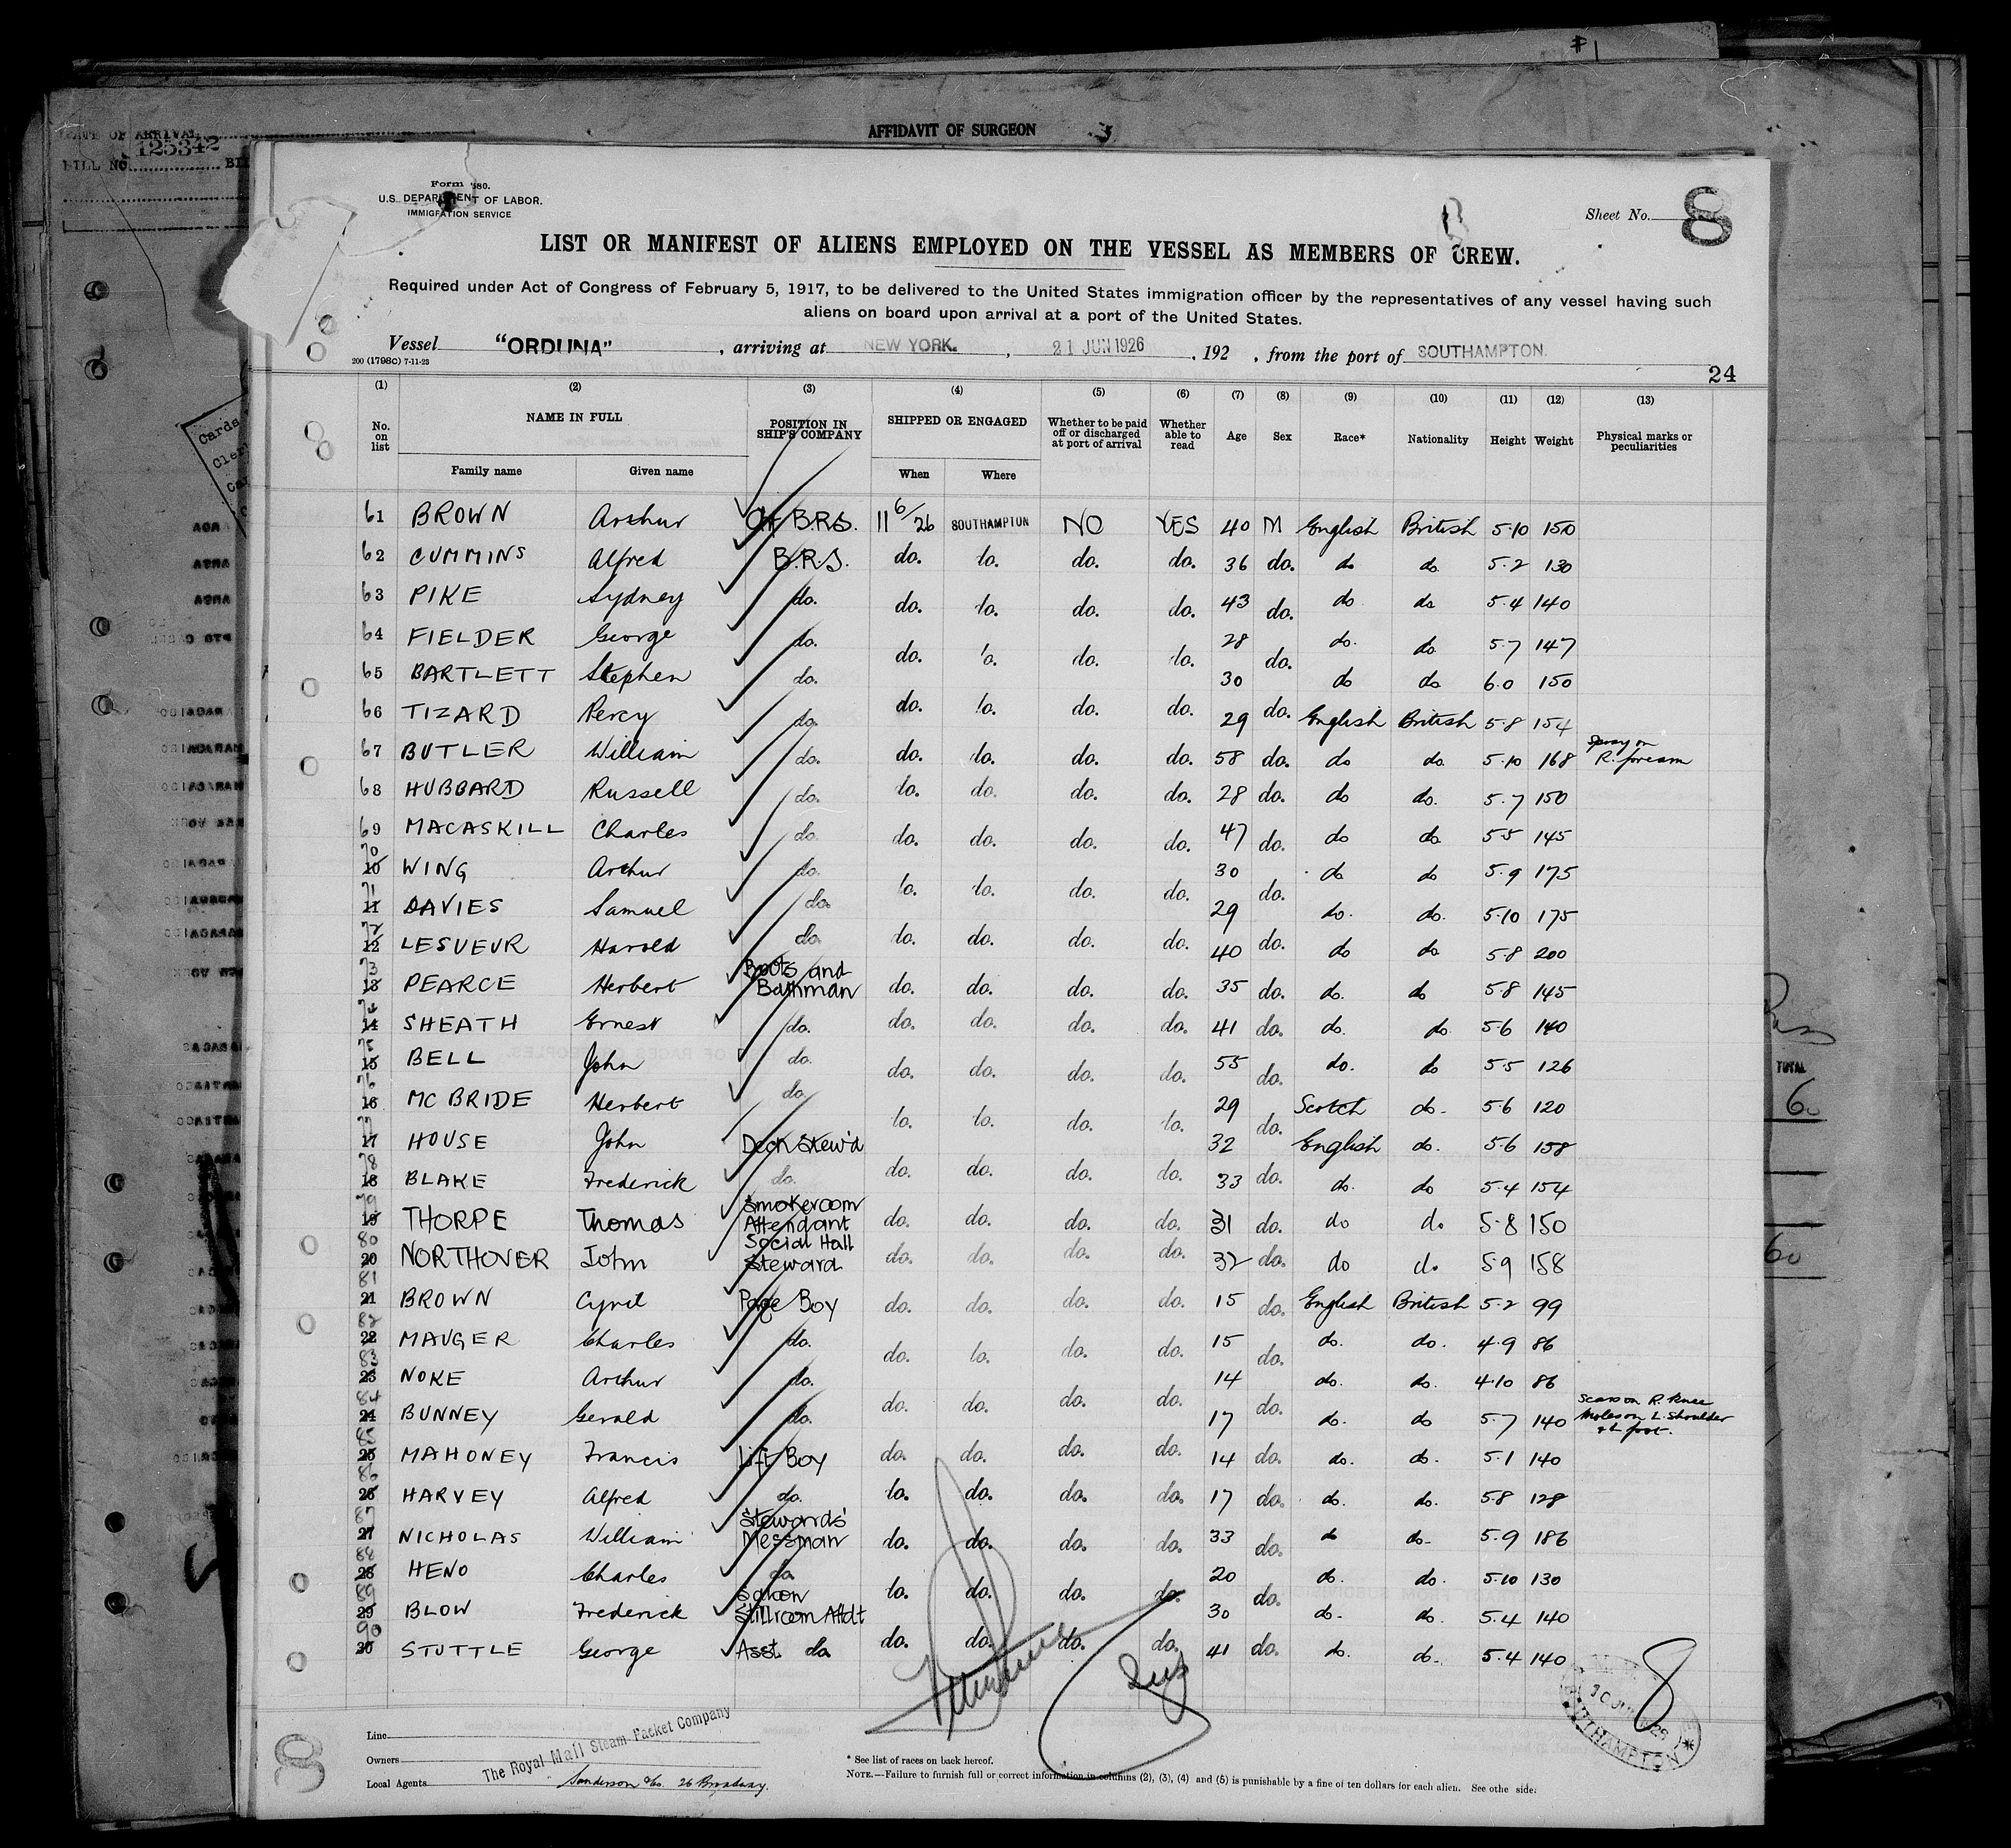 #1
AFFIDAVIT OF SURGEON
DATE OF ARRIVAL
BILL NO. 125342
Form 680.
U.S. DEPARTMENT OF LABOR.
IMMIGRATION SERVICE
Sheet No. 8
LIST OR MANIFEST OF ALIENS EMPLOYED ON THE VESSEL AS MEMBERS OF CREW.
Required under Act of Congress of February 5, 1917, to be delivered to the United States immigration officer by the representatives of any vessel having such
aliens on board upon arrival at a port of the United States.
Vessel "ORDUNA", arriving at NEW YORK., 21 JUN 1926, 192 , from the port of SOUTHAMPTON.
200 (1798C) 7-11-23
24
(1) (2) (3) (4) (5) (6) (7) (8) (9) (10) (11) (12) (13)
No. on list NAME IN FULL POSITION IN SHIP'S COMPANY SHIPPED OR ENGAGED Whether to be paid off or discharged at port of arrival Whether able to read Age Sex Race* Nationality Height Weight Physical marks or peculiarities
Family name Given name When Where
61 BROWN Arthur Ch B.R.S. 11 6/26 SOUTHAMPTON NO YES 40 M English British 5-10 150
62 CUMMINS Alfred B.R.S. do. do. do. do. 36 do. do do. 5.2 130
63 PIKE Sydney do. do. do. do. do. 43 do. do do 5.4 140
64 FIELDER George do. do. do. do. do. 28 do. do. do. 5.7 147
65 BARTLETT Stephen do. do. do. do. do. 30 do. do do 6.0 150
66 TIZARD Percy do. do. do. do. do. 29 do. English British 5-8 154
67 BUTLER William do. do. do. do. do. 58 do. do do. 5-10 168 R. forearm
68 HUBBARD Russell do. do. do. do. do. 28 do. do do. 5.7 150
69 MACASKILL Charles do. do. do. do. do. 47 do. do do 5-5 145
70 10 WING Arthur do. do. do. do. do. 30 do. do do 5.9 175
71 11 DAVIES Samuel do. do. do. do. do. 29 do. do. do. 5-10 175
72 12 LESUEUR Harold do. do. do. do. do. 40 do. do do 5-8 200
73 13 PEARCE Herbert Boots and Bathman do. do. do. do. 35 do. do. do 5-8 145
74 14 SHEATH Ernest do. do. do. do. do. 41 do. do. do. 5-6 140
75 15 BELL John do. do. do. do. do. 55 do. do. do 5-5 126
76 16 MC BRIDE Herbert do. do. do. do. do. 29 do. Scotch do. 5-6 120
77 17 HOUSE John Deck Stew'd do. do. do. do. 32 do. English do. 5-6 158
78 18 BLAKE Frederick do. do. do. do. do. 33 do. do. do 5.4 154
79 19 THORPE Thomas Smokeroom Attendant do. do. do. do. 31 do. do do 5-8 150
80 20 NORTHOVER John Social Hall Steward do. do. do. do. 32 do. do do. 5.9 158
81 21 BROWN Cyril Page Boy do. do. do. do. 15 do. English British 5-2 99
82 22 MAUGER Charles do. do. do. do. do. 15 do. do. do. 4-9 86
83 23 NOKE Arthur do. do. do. do. do. 14 do. do. do. 4-10 86
84 24 BUNNEY Gerald do. do. do. do. do. 17 do. do. do 5-7 140 Scar on R. Knee Moles on L. Shoulder & L foot.
85 25 MAHONEY Francis Lift Boy do. do. do. do. 14 do. do. do. 5-1 140
86 26 HARVEY Alfred do. do. do. do. do. 17 do. do. do. 5-8 128
87 27 NICHOLAS William Stewards' Messman do. do. do. do. 33 do. do do. 5.9 186
88 28 HENO Charles do. do. do. do. do. 20 do. do. do. 5-10 130
89 29 BLOW Frederick Saloon Stillroom Attdt do. do. do. do. 30 do. do. do. 5.4 140
90 30 STUTTLE George Asst do do. do. do. do. 41 do. do. do. 5.4 140
8
Line
Owners The Royal Mail Steam Packet Company
Local Agents Sanderson & Co. 26 Broadway.
* See list of races on back hereof.
NOTE.—Failure to furnish full or correct information in columns (2), (3), (4) and (5) is punishable by a fine of ten dollars for each alien. See othe side.
SOUTHAMPTON
TOTAL
60
60